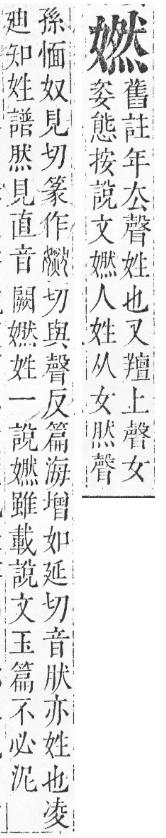 嬿
舊註年𠫤聲姓也又羶上聲女
姿態按說文嬿人姓从女然聲
孫愐奴見切篆作 切與聲反篇海增如延切音肰亦姓也凌
迪知姓譜然見直音闕嬿姓一說嬿雖載說文玉篇不必泥